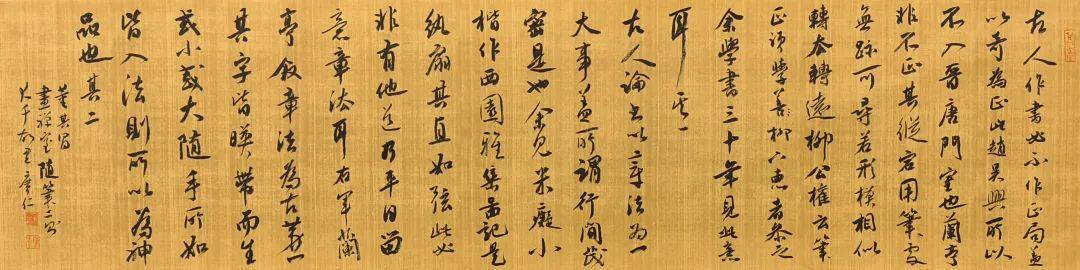 古人作書必不作正局蓋
以奇為正此趙吳興所以
不入晉唐門室也蘭亭
非不正其縱宕用筆處
無跡可尋若形模相似
轉去轉遠柳公權云筆
正須學善柳下惠者參之
余學書三十年見此意
耳 其一
古人論書以章法為一
大事蓋所謂行間茂
密是也余見米癡小
楷作西園雅集圖記是
紈扇其直如弦此必
非有他道乃平日留
意章法耳右軍蘭
亭敘章法為古第一
其字皆暎帶而生
或小或大隨手所如
皆入法則所以為神
品也 其二
董其昌
畫禪室隨筆二則